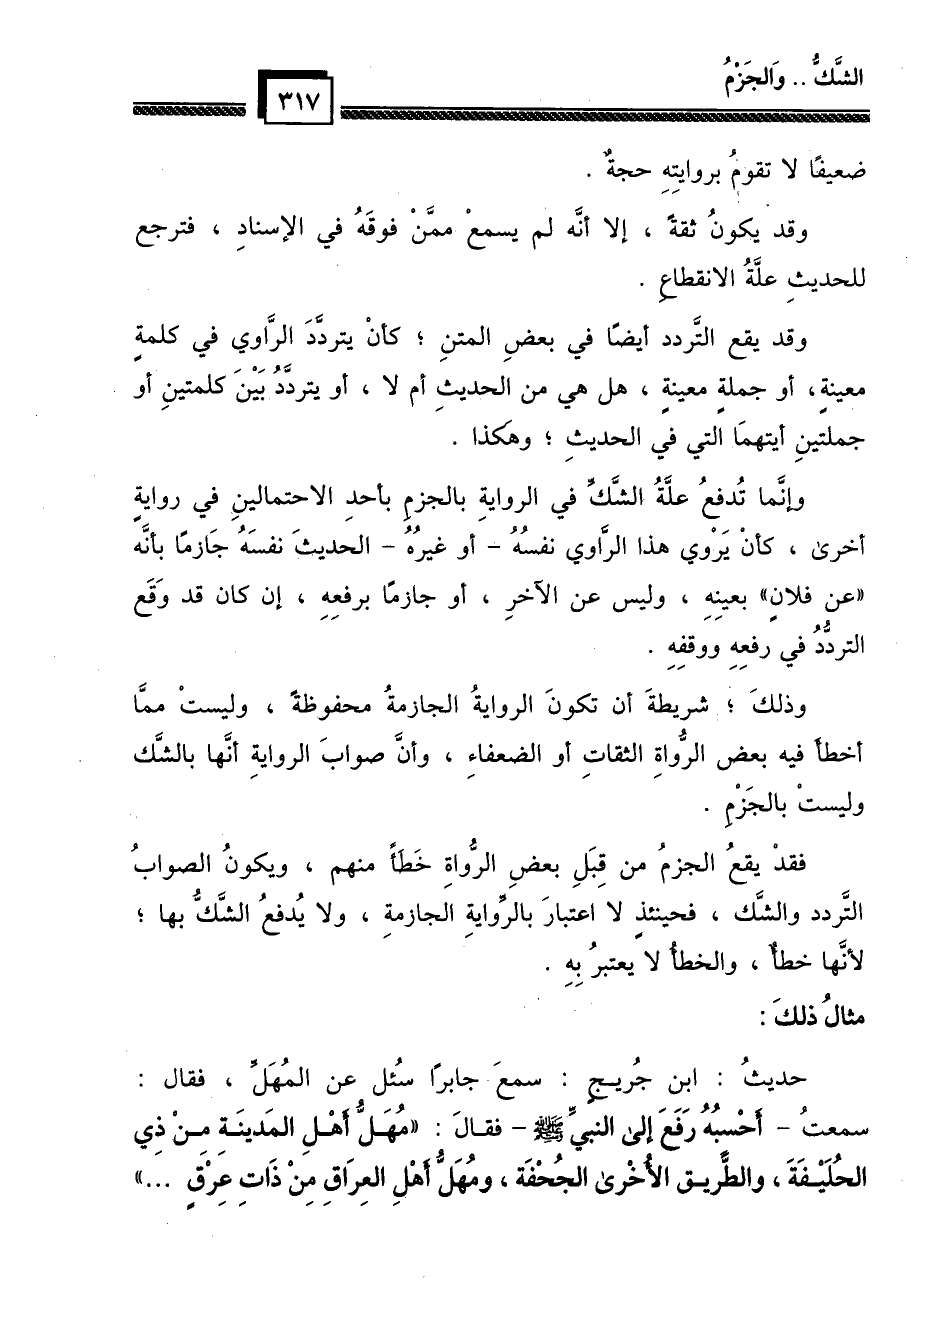 الشَّكُّ .. وَالجَزْمُ
٣١٧
ضعيفًا لا تقومُ بروايتِهِ حجةٌ .
وقد يكونُ ثقةً ، إلا أنَّه لم يسمعْ ممَّنْ فوقَهُ في الإسنادِ ، فترجع
للحديثِ علَّةُ الانقطاعِ .
وقد يقع التَّردد أيضًا في بعضِ المتنِ ؛ كأنْ يتردَّدَ الرَّاوي في كلمةٍ
معينةٍ، أو جملةٍ معينةٍ ، هل هي من الحديثِ أم لا ، أو يتردَّدُ بَيْنَ كلمتينِ أو
جملتينِ أيتهمَا التي في الحديثِ ؛ وهَكذا .
وإنَّما تُدفعُ علَّةُ الشَّكِّ في الروايةِ بالجزمِ بأحدِ الاحتمالينِ في روايةٍ
أخرىٰ ، كأنْ يَرْوي هذا الرَّاوي نفسُهُ - أو غيرُهُ - الحديثَ نفسَهُ جَازمًا بأنَّه
«عن فلانٍ» بعينِهِ ، وليس عن الآخرِ ، أو جازمًا برفعِهِ ، إن كان قد وَقَع
التردُّدُ في رفعِهِ ووقفِهِ .
وذلكَ ؛ شريطةَ أن تكونَ الروايةُ الجازمةُ محفوظةً ، وليستْ ممَّا
أخطأَ فيه بعض الرُّواةِ الثقاتِ أو الضعفاءِ ، وأنَّ صوابَ الروايةِ أنَّها بالشَّك
وليستْ بالجَزْمِ .
فقدْ يقعُ الجزمُ من قِبَلِ بعضِ الرُّواةِ خَطَأً منهم ، ويكونُ الصوابُ
التَّردد والشَّك ، فحينئذٍ لا اعتبارَ بالرِّوايةِ الجازمةِ ، ولا يُدفعُ الشَّكُّ بها ؛
لأنَّها خطأٌ ، والخطأُ لا يعتبرُ بِهِ .
مثالُ ذلكَ :
حديثُ : ابن جُريجٍ : سمعَ جابرًا سُئل عن المُهَلِّ ، فقال :
سمعتُ - أَحْسِبُهُ رَفَعَ إلىٰ النبيِّ ﷺ - فقـالَ : «مُهَلُّ أَهْـلِ المَدينَـةِ مِـنْ ذِي
الحُلَيْـفَةَ ، والطَّرِيـقِ الأُخْرىٰ الجُحْفَة ، ومُهَلُّ أَهْلِ العِرَاقِ مِنْ ذَاتِ عِرْقٍ ...»